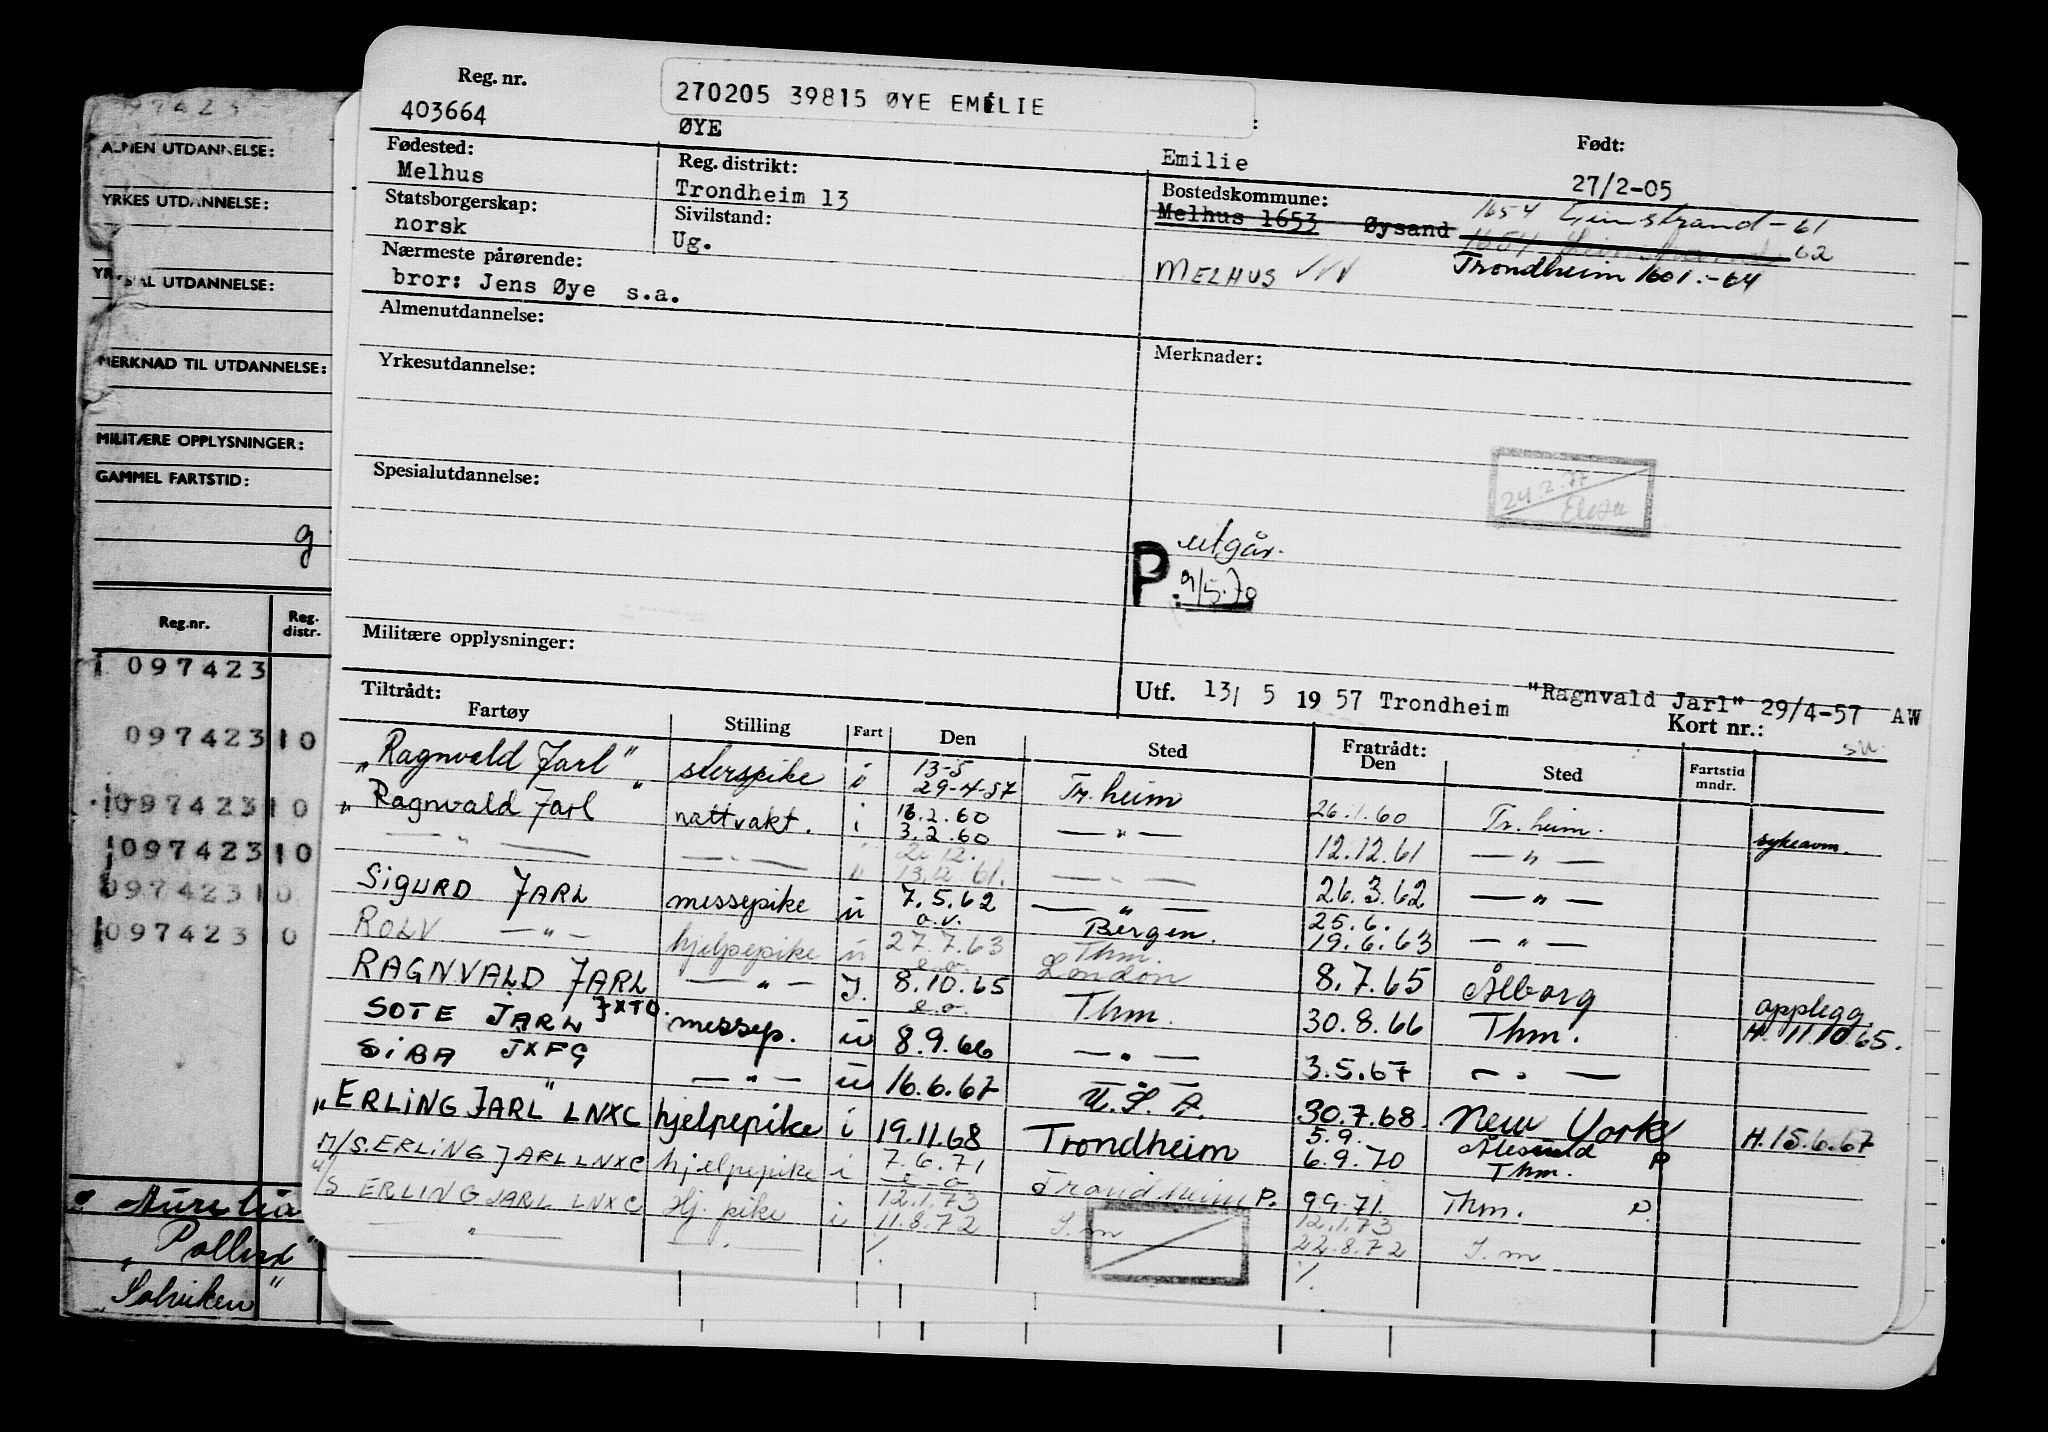 ALMEN UTDANNELSE:
YRKES UTDANNELSE:
UTDANNELSE:
MERKNAD TIL UTDANNELSE:
MILITÆRE OPPLYSNINGER:
GAMMEL FARTSTID:
g
Reg.nr. Reg. distr.
097423
097423 10
097423 10
097423 10
097423 10
097423 10
Aurelia
"Pollux"
"Solviken"
Reg. nr.
403664
270205 39815 ØYE EMILIE
ØYE
Emilie
Født:
27/2-05
Fødested:
Melhus
Reg. distrikt:
Trondheim 13
Bostedskommune:
Melhus 1653 Øysand
1654 -61
1654 62
MELHUS
Trondheim 1601.-64
Statsborgerskap:
norsk
Sivilstand:
Ug.
Nærmeste pårørende:
bror: Jens Øye s.a.
Almenutdannelse:
Yrkesutdannelse:
Merknader:
24.2.77
Spesialutdannelse:
P utgår.
9/5.70
Militære opplysninger:
Utf. 13/ 5 19 57 Trondheim "Ragnvald Jarl" 29/4-57 AW
Kort nr.:
Tiltrådt:
Fartøy Stilling Fart Den Sted Fratrådt: Den Sted Fartstid mndr.
"Ragnvald Jarl" i 13-5 29-4-57 Tr. heim 26.1.60 Tr. heim. sykeavm.
"Ragnvald Jarl" nattvakt. i 16.2.60 3.2.60 — " — 12.12.61 — " —
— " — — " — 13.12.61. — " — 26.3.62 — " —
SIGURD JARL messepike u 7.5.62 — " — Bergen. 25.6. 19.6.63 — " —
ROLV — " — hjelpepike u 27.7.63 Thm. London 8.7.65 Ålborg opplegg.
RAGNVALD JARL — " — I. 8.10.65 Thm. 30.8.66 Thm. H. 11.10.65.
SOTE JARL JXTO. messep. u 8.9.66 — " — 3.5.67 — " —
SIBA JXFG — " — u 16.6.67 U.S.A. 30.7.68. New York H. 15.6.67
"ERLING JARL" LNXC hjelpepike i 19.11.68 Trondheim 5.9. 6.9.70 Ålesund Thm. P
M/S. ERLING JARL LNXC hjelpepike i 7.6.71 Trondheim P. 9.9.71. Thm. P.
M/S ERLING JARL LNXC Hj. pike i 12.1.73 11.8.72 12.1.73 22.8.72
— " — — " —